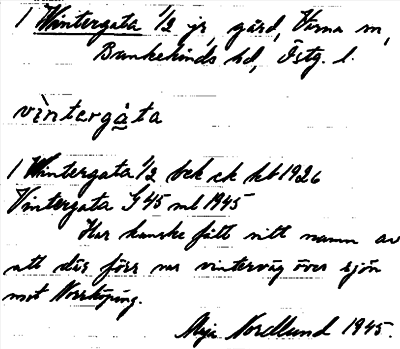 1 Wintergata 1/2 jr, gård, Värna sn,
Bankekinds hd, Östg. l.
vìnterga̲ta
1 Wintergata 1/2 bek ek kb 1926
Vintergata G45 ml 1945
Har kanske fått sitt namn av
att där förr var vinterväg över sjön
mot Norrköping.
Norellund 1945.